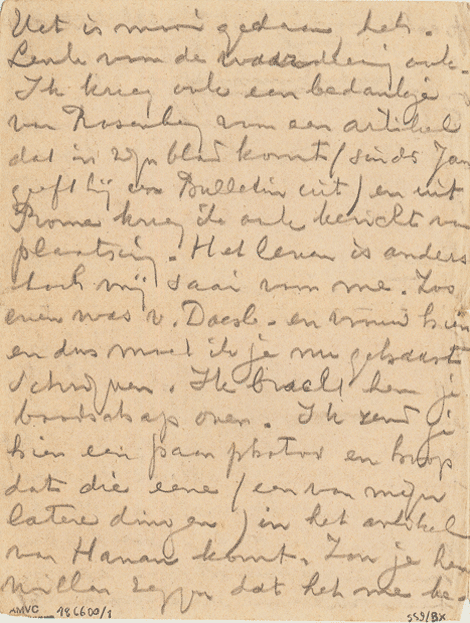 Het is mooi gedaan, heh.
Leuk van de waardeering ook.
Ik kreeg ook een bedankje
van Rosenberg van een artikel
dat in zijn blad komt (sinds Jan
geeft hij een Bulletin uit) en uit
Rome kreeg ik ook bericht van
plaatsing. Het leven is anders
toch vrij saai van me. Zoo
even was v. Doesb. en vrouw hier
en dus moet ik je nu gehaast
schrijven. Ik bracht hem je
boodschap over. Ik zend je
hier een paar photos en hoop
dat die eene (een van mijn
latere dingen) in het artikel
van Hanan komt. Zou je hem
willen zeggen dat het me be-
AMVC 186600/1
559/BX